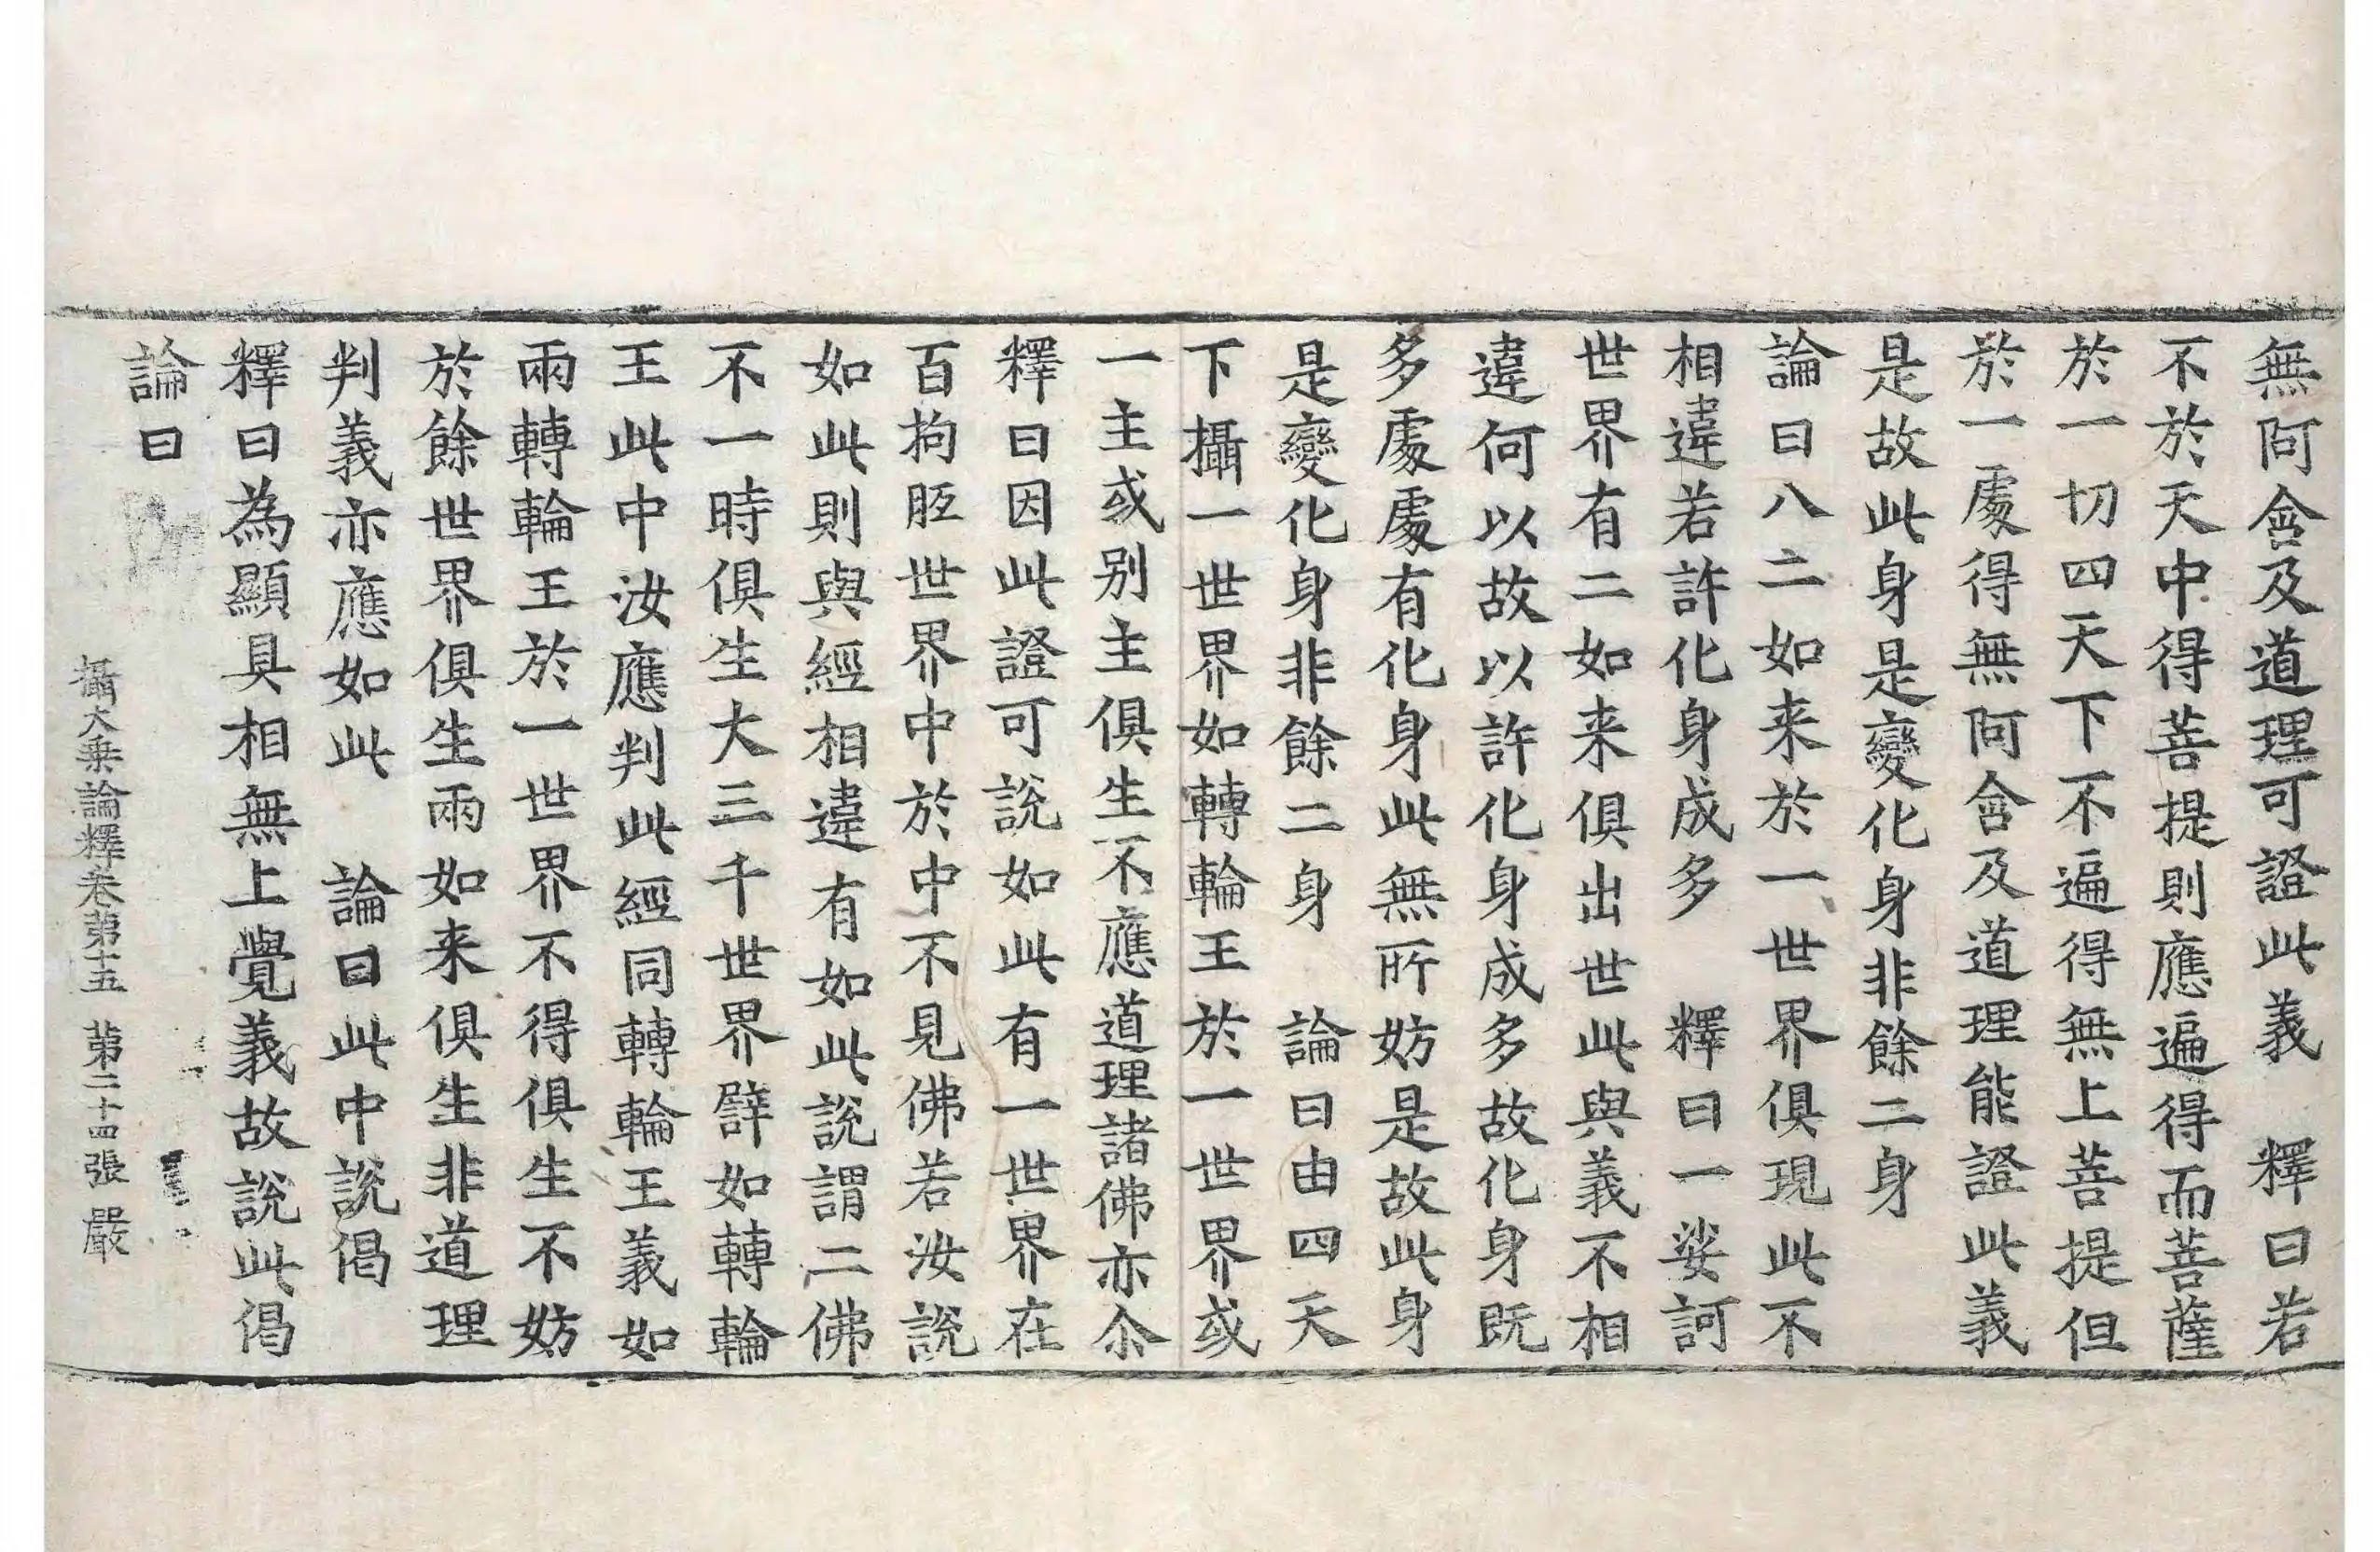 無阿含及道理可證此義　釋曰若
不於天中得菩提則應遍得而菩薩
於一切四天下不遍得無上菩提但
於一處得無阿含及道理能證此義
是故此身是變化身非餘二身
論曰八二如来於一世界俱現此不
相違若許化身成多　釋曰一娑訶
世界有二如来俱出世此與義不相
違何以故以許化身成多故化身既
多處處有化身此無所妨是故此身
是變化身非餘二身　論曰由四天
下攝一世界如轉輪王於一世界或
一主或别主俱生不應道理諸佛亦尒
釋曰因此證可說如此有一世界在
百拘胝世界中於中不見佛若汝說
如此則與經相違有如此說謂二佛
不一時俱生大三千世界譬如轉輪
王此中汝應判此經同轉輪王義如
兩轉輪王於一世界不得俱生不妨
於餘世界俱生兩如来俱生非道理
判義亦應如此　論曰此中說偈
釋曰為顯具相無上覺義故說此偈
論曰
攝大乗論釋卷第十五　第二十四張　嚴